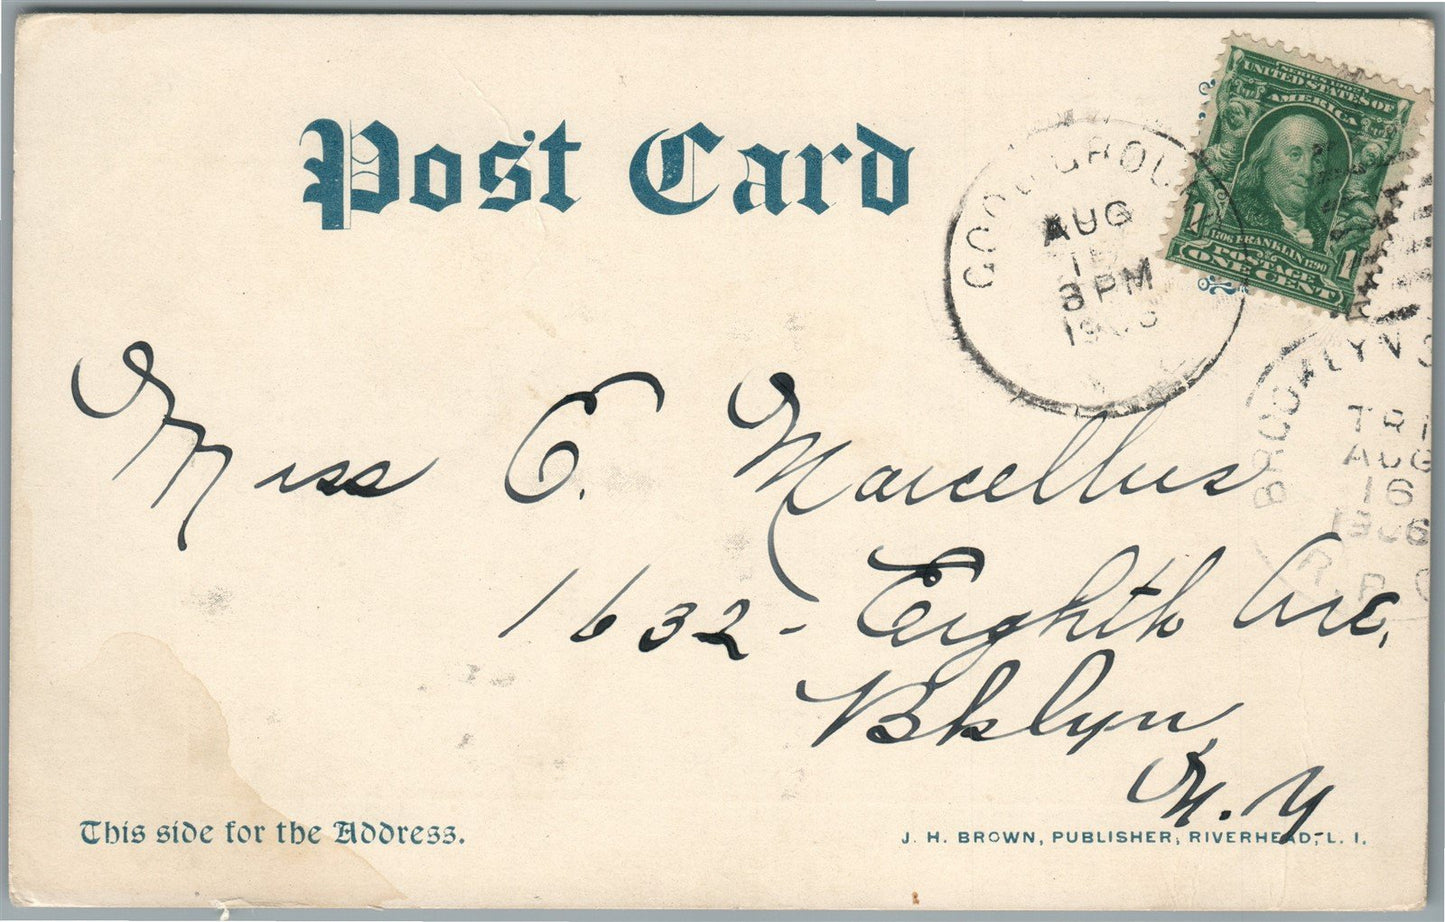 Post Card
GOOD GROUND
AUG
15
3 PM
1906
SERIES 1902
UNITED STATES OF
AMERICA
1
1
1706 FRANKLIN 1790
POSTAGE
ONE CENT
BROOKLYN
AUG
16
1906
R.P.O
Miss E. Marcellus
1632 - Eighth Ave,
Bklyn,
N.Y-
This side for the Address.
J. H. BROWN, PUBLISHER, RIVERHEAD, L. I.